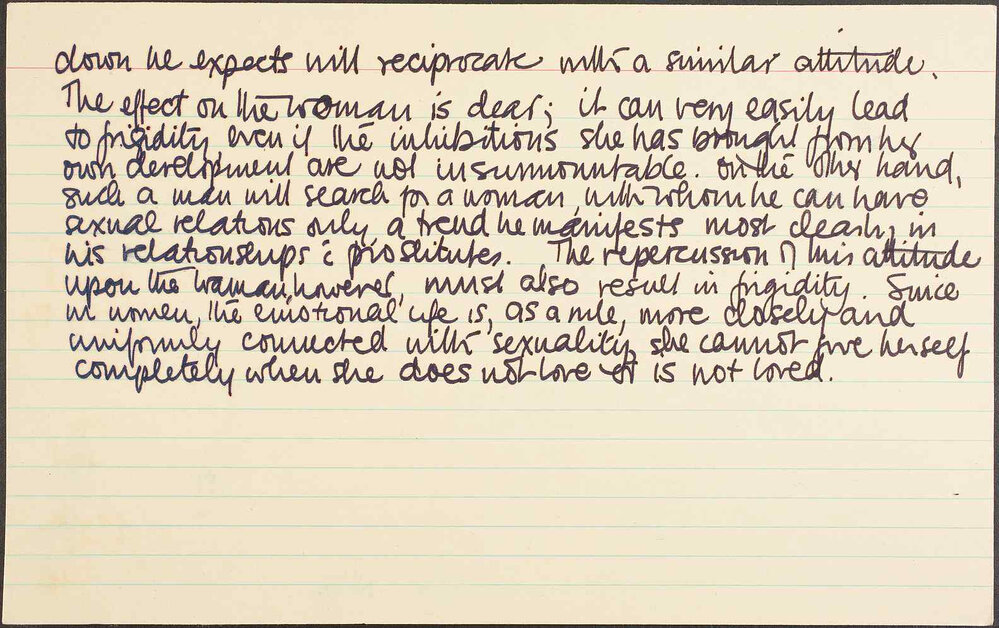 down he expects will reciprocate with a similar attitude.
The effect on the woman is clear; it can very easily lead
to frigidity, even if the inhibitions she has brought from her
own development are not insurmountable. on the other hand,
such a man will search for a woman, with whom he can have
sexual relations only, a trend he manifests most clearly in
his relationships c̄ prostitutes. The repercussion of this attitude
upon the woman, however, must also result in frigidity. Since
in women, the emotional life is, as a rule, more closely and
uniformly connected with sexuality, she cannot give herself
completely when she does not love or is not loved.